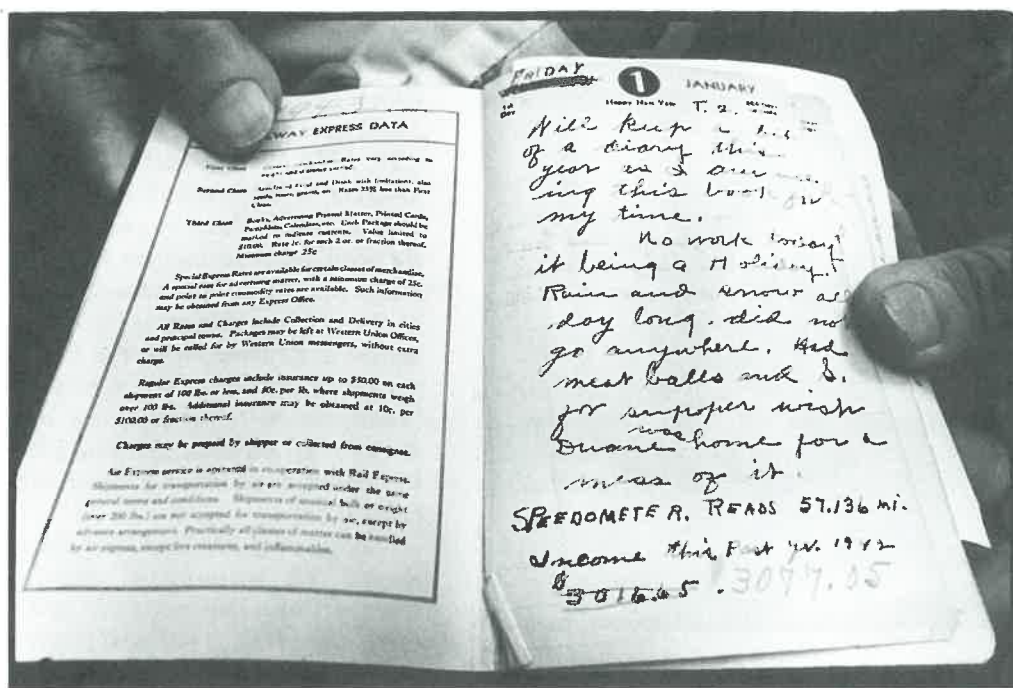 WAY EXPRESS DATA
Rates vary according to
Second Class
seeds, trees, plants, etc. Rates 25% less than First
Class.
Third Class Books, Advertising Printed Matter, Printed Cards,
Pamphlets, Calendars, etc. Each Package should be
marked to indicate contents. Value limited to
$10.00. Rate 1c. for each 2 oz. or fraction thereof.
Minimum charge 25c
Special Express Rates are available for certain classes of merchandise.
A special rate for advertising matter, with a minimum charge of 25c.
and point to point commodity rates are available. Such information
may be obtained from any Express Office.
All Rates and Charges Include Collection and Delivery in cities
and principal towns. Packages may be left at Western Union Offices,
or will be called for by Western Union messengers, without extra
charge.
Regular Express charges include insurance up to $50.00 on each
shipment of 100 lbs. or less, and 50c. per lb. where shipments weigh
over 100 lbs. Additional insurance may be obtained at 10c. per
$100.00 or fraction thereof.
Charges may be prepaid by shipper or collected from consignee.
Air Express service is operated in cooperation with Rail Express.
Shipments for transportation by air are accepted under the same
general terms and conditions. Shipments of unusual bulk or weight
(over 200 lbs.) are not accepted for transportation by air, except by
advance arrangement. Practically all classes of matter can be handled
by air express, except live creatures, and inflammables.
FRIDAY
1 JANUARY
1st Day Happy New Year T. 2.
Will keep a
of a diary this
year as I am
ing this book on
my time.
No work today
it being a Holiday.
Rain and snow all
day long. did no
go anywhere. Had
meat balls and S.
for supper wish
Duane was home for a
mess of it.
SPEEDOMETER. READS 57.136 mi.
Income this Past yr. 1942
$3016.65. 3077.05